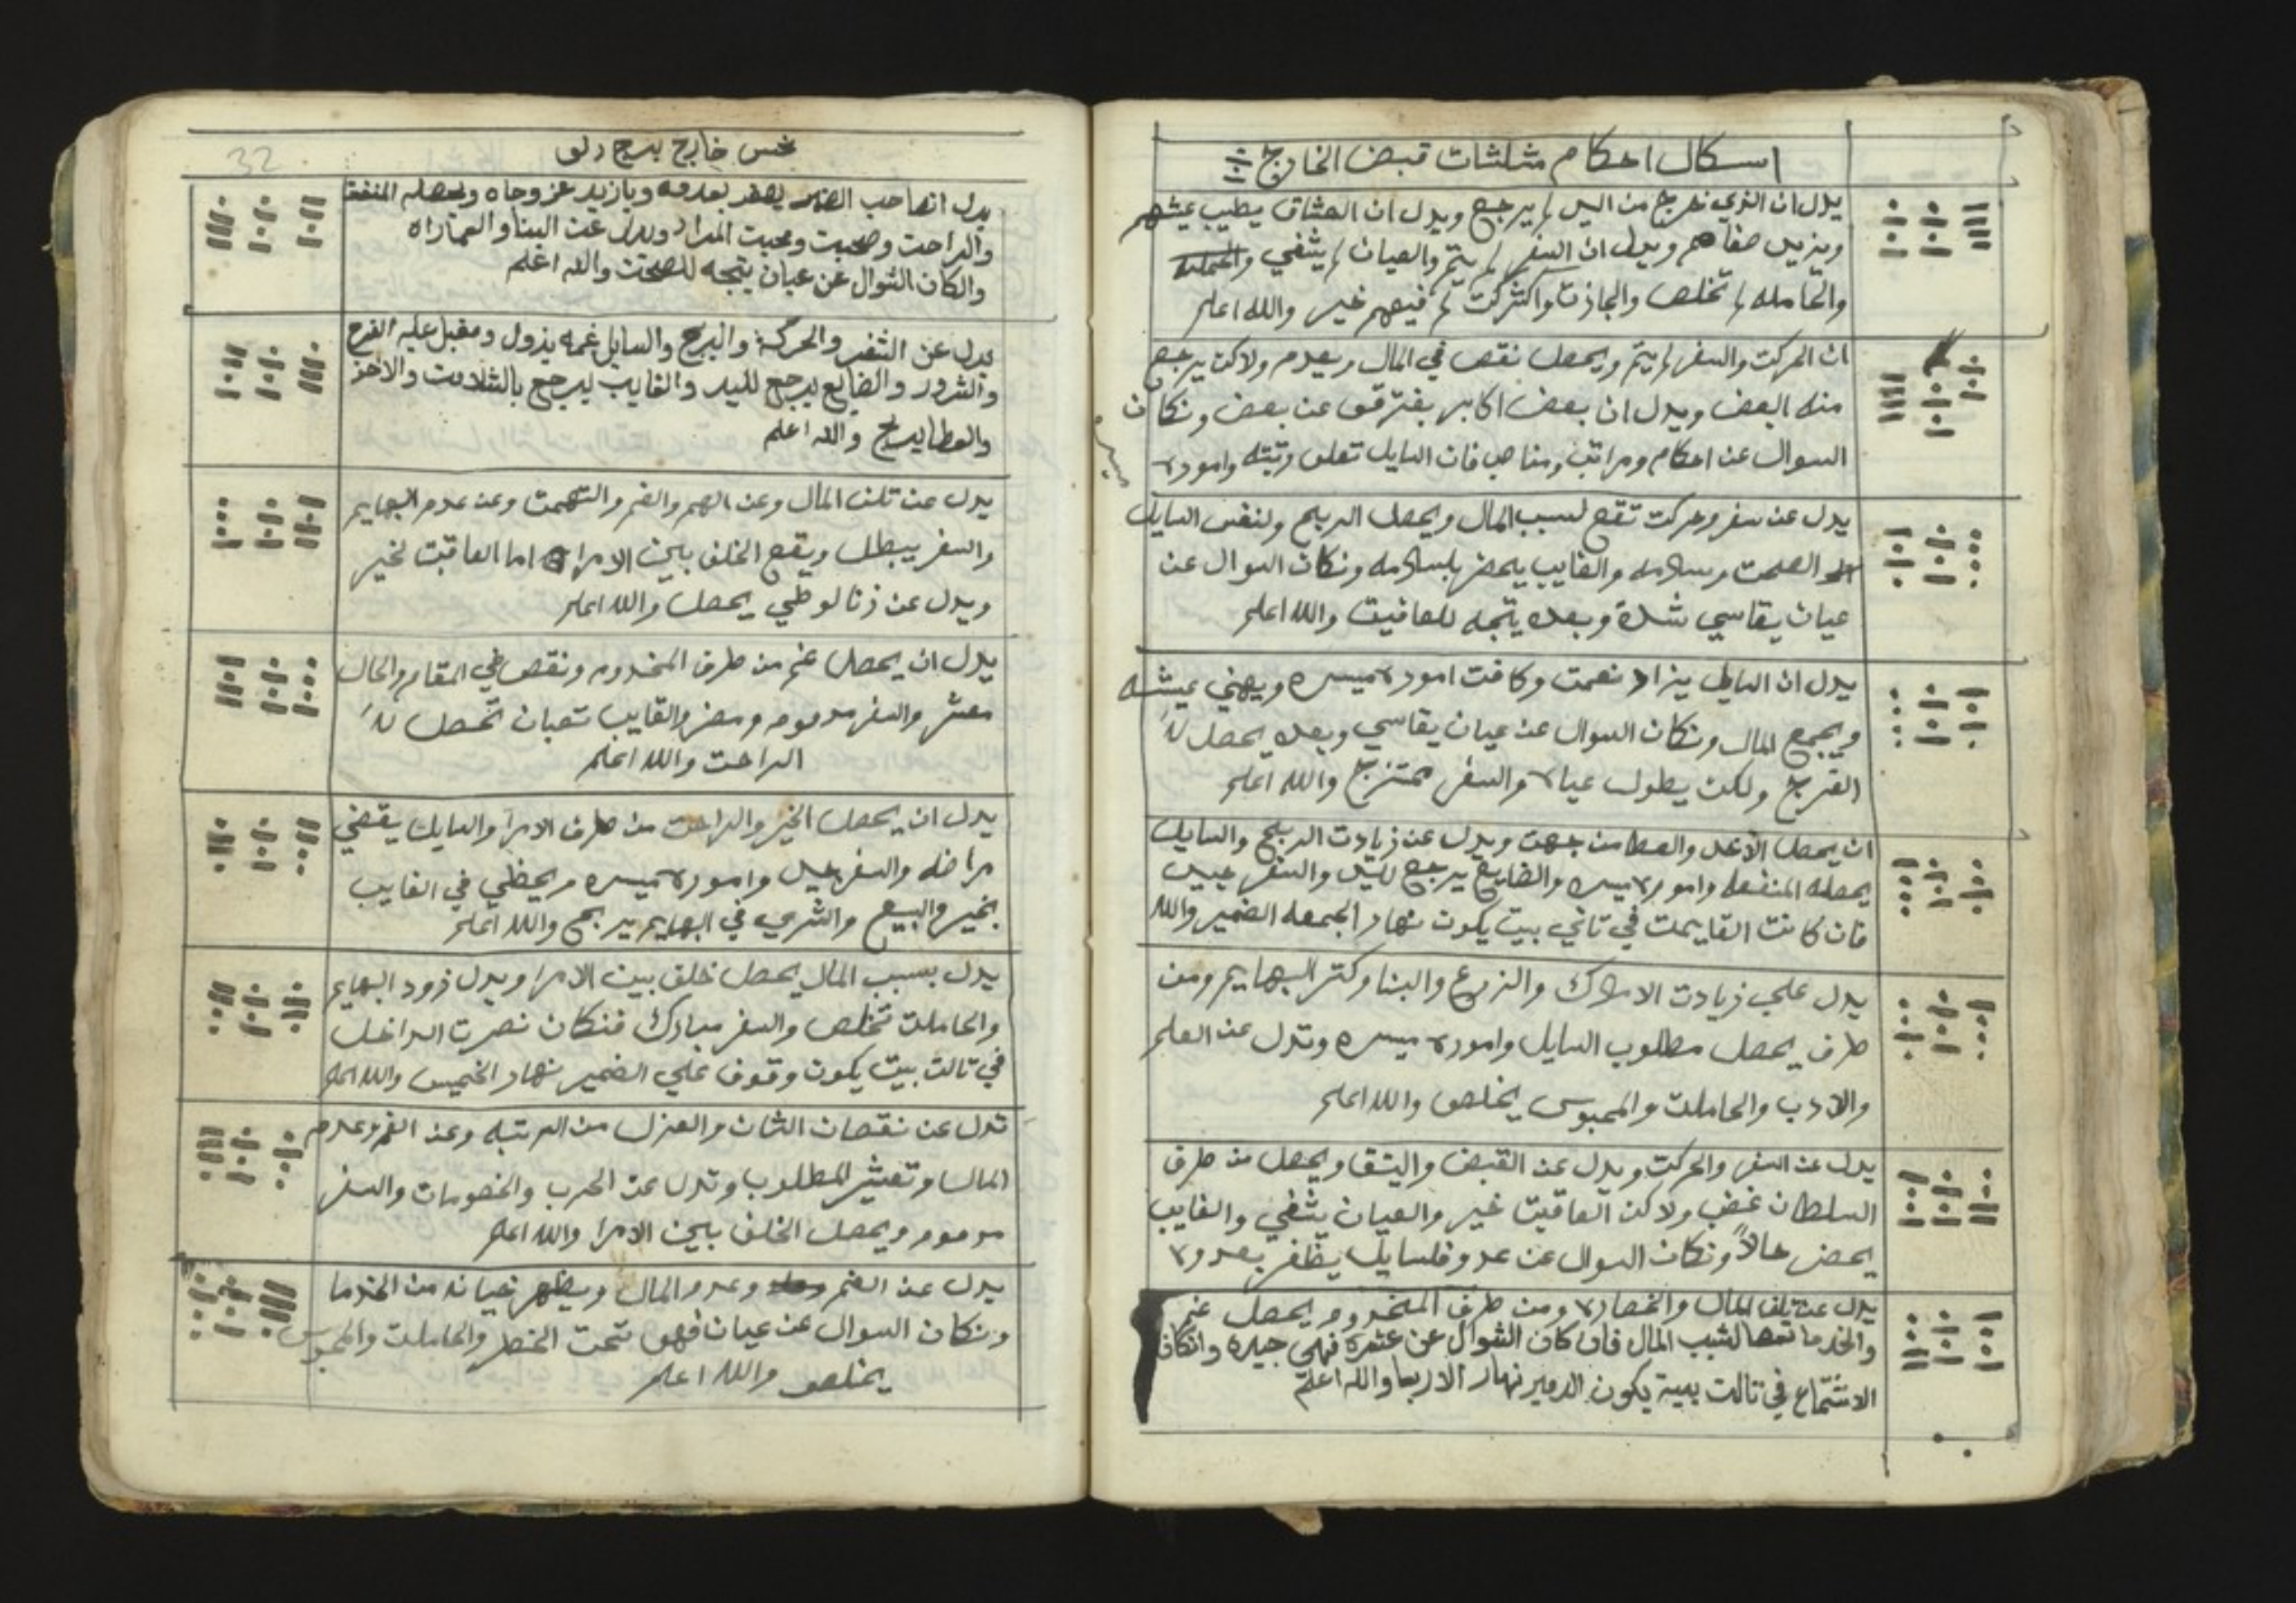 اشكال احكام مثلثات قبض الخارج
يدل ان الذي خرج من اليد لم يرجع ويدل ان العشاق يطيب عيشهم
ويزيد صفاهم ويدل ان السفر لم يتم والعيان لم يشفي
والحامله لم تخلص والجازت واكشركت لم فيهم خير والله اعلم
ان الحركت والسفر لم يتم ويحصل نقص في المال وبعدم ولاكن يرجع
منه البعض ويدل ان بعض اكابر يفترقو عن بعض ونكان
السوال عن احكام ومراتب ومناصب فان السايل تعلى رتبته وامورہ
ميسره
يدل عن سفر وحركت تقع لسبب المال ويحصل الربح ولنفس السايل
الصحت وسلامه والغايب يحضر بلسلامه ونكان السوال عن
عيان يقاسي شدة وبعده يتجه للعافيت والله اعلم
يدل ان السايل يزاد نعمت وكافت امورہ ميسره ويهني عيشه
ويجمع المال ونكان السوال عن عيان يقاسي وبعده يحصل له
الفرج ولكن يطول عياہ والسفر ممتزج والله اعلم
ان يحصل الاخد والعطا من جهت ويدل عن زيادت الربح والسايل
يحصله المنفعه وامورہ ميسره والضايع يرجع لليد والسفر جيد
فان كانت القايمت في تاني بيت يكون نهار الجمعه الضمير والله
يدل على زيادت الاملاك والزرع والبنا وكتر البهايم ومن
طرف يحصل مطلوب السايل وامورہ ميسره وتدل عن العلم
والادب والحاملت والمحبوس يخلص والله اعلم
يدل عن السفر والحركت ويدل عن القبض والشقا ويحصل من طرف
السلطان غضب ولاكن العاقبت خير والعيان يشفي والغايب
يحضر حالاً ونكان السوال عن عدو فلسايل يظفر بعدوہ
يدل عن تلف المال والخصارہ ومن طرف المخدوم يحصل غم
والخدما تعصا لسبب المال فان كان السوال عن عشرة فهي جيده وانكان
الاجتماع في تالت بيت يكون الدمير نهار الاربعا والله اعلم
نحس خارج برج دلو
32
يدل انصاحب الضمير يضفر بعدوه ويازيد عز وجاه ويحصله المنفعة
والراحت وصحبت ومحبت المراد ويدل عن البنا والعماراه
والكان السوال عن عيان يتجه للصحت والله اعلم
يدل عن السفر والحركة والبرج والسايل غمه يزول ومقبل عليه الفرج
والسرور والضايع يرجع لليد والغايب ليرجع بالسلامت والاخذ
والعطا يربح والله اعلم
يدل عن تلف المال وعن الهم والغم والتهمت وعن عدم البهايم
والسفر يبطل ويقع الخلف بين الامرا اما العاقبت لخير
ويدل عن زنا لوطي يحصل والله اعلم
يدل ان يحصل غم من طرف المخدوم ونقص في المقام والحال
معشر والسفر مدموم ومضر والغايب تعبان تحصل له
الراحت والله اعلم
يدل ان يحصل الخير والراحت من طرف الامرا والسايل يقضي
مراضه والسفر جيد وامورہ ميسره ويحظي في الغايب
بخير والبيع والشري في البهايم يربح والله اعلم
يدل بسبب المال يحصل خلف بين الامرا ويدل زود البهايم
والحاملت تخلص والسفر مبارك فنكان نصرت الداخل
في تالت بيت يكون وقوف علي الضمير نهار الخميس والله اعلم
تدل عن نقصان الشان والعزل من الرتبه وعن الغم وعدم
المال وتعشير المطلوب وتدل عن الحرب والخصومات والسفر
مدموم ويحصل الخلف بين الامرا والله اعلم
يدل عن الغم وعدم المال ويظهر خيانه من الخدما
ونكان السوال عن عيان فهو تحت الخطر والحاملت والمحبوس
يخلص والله اعلم